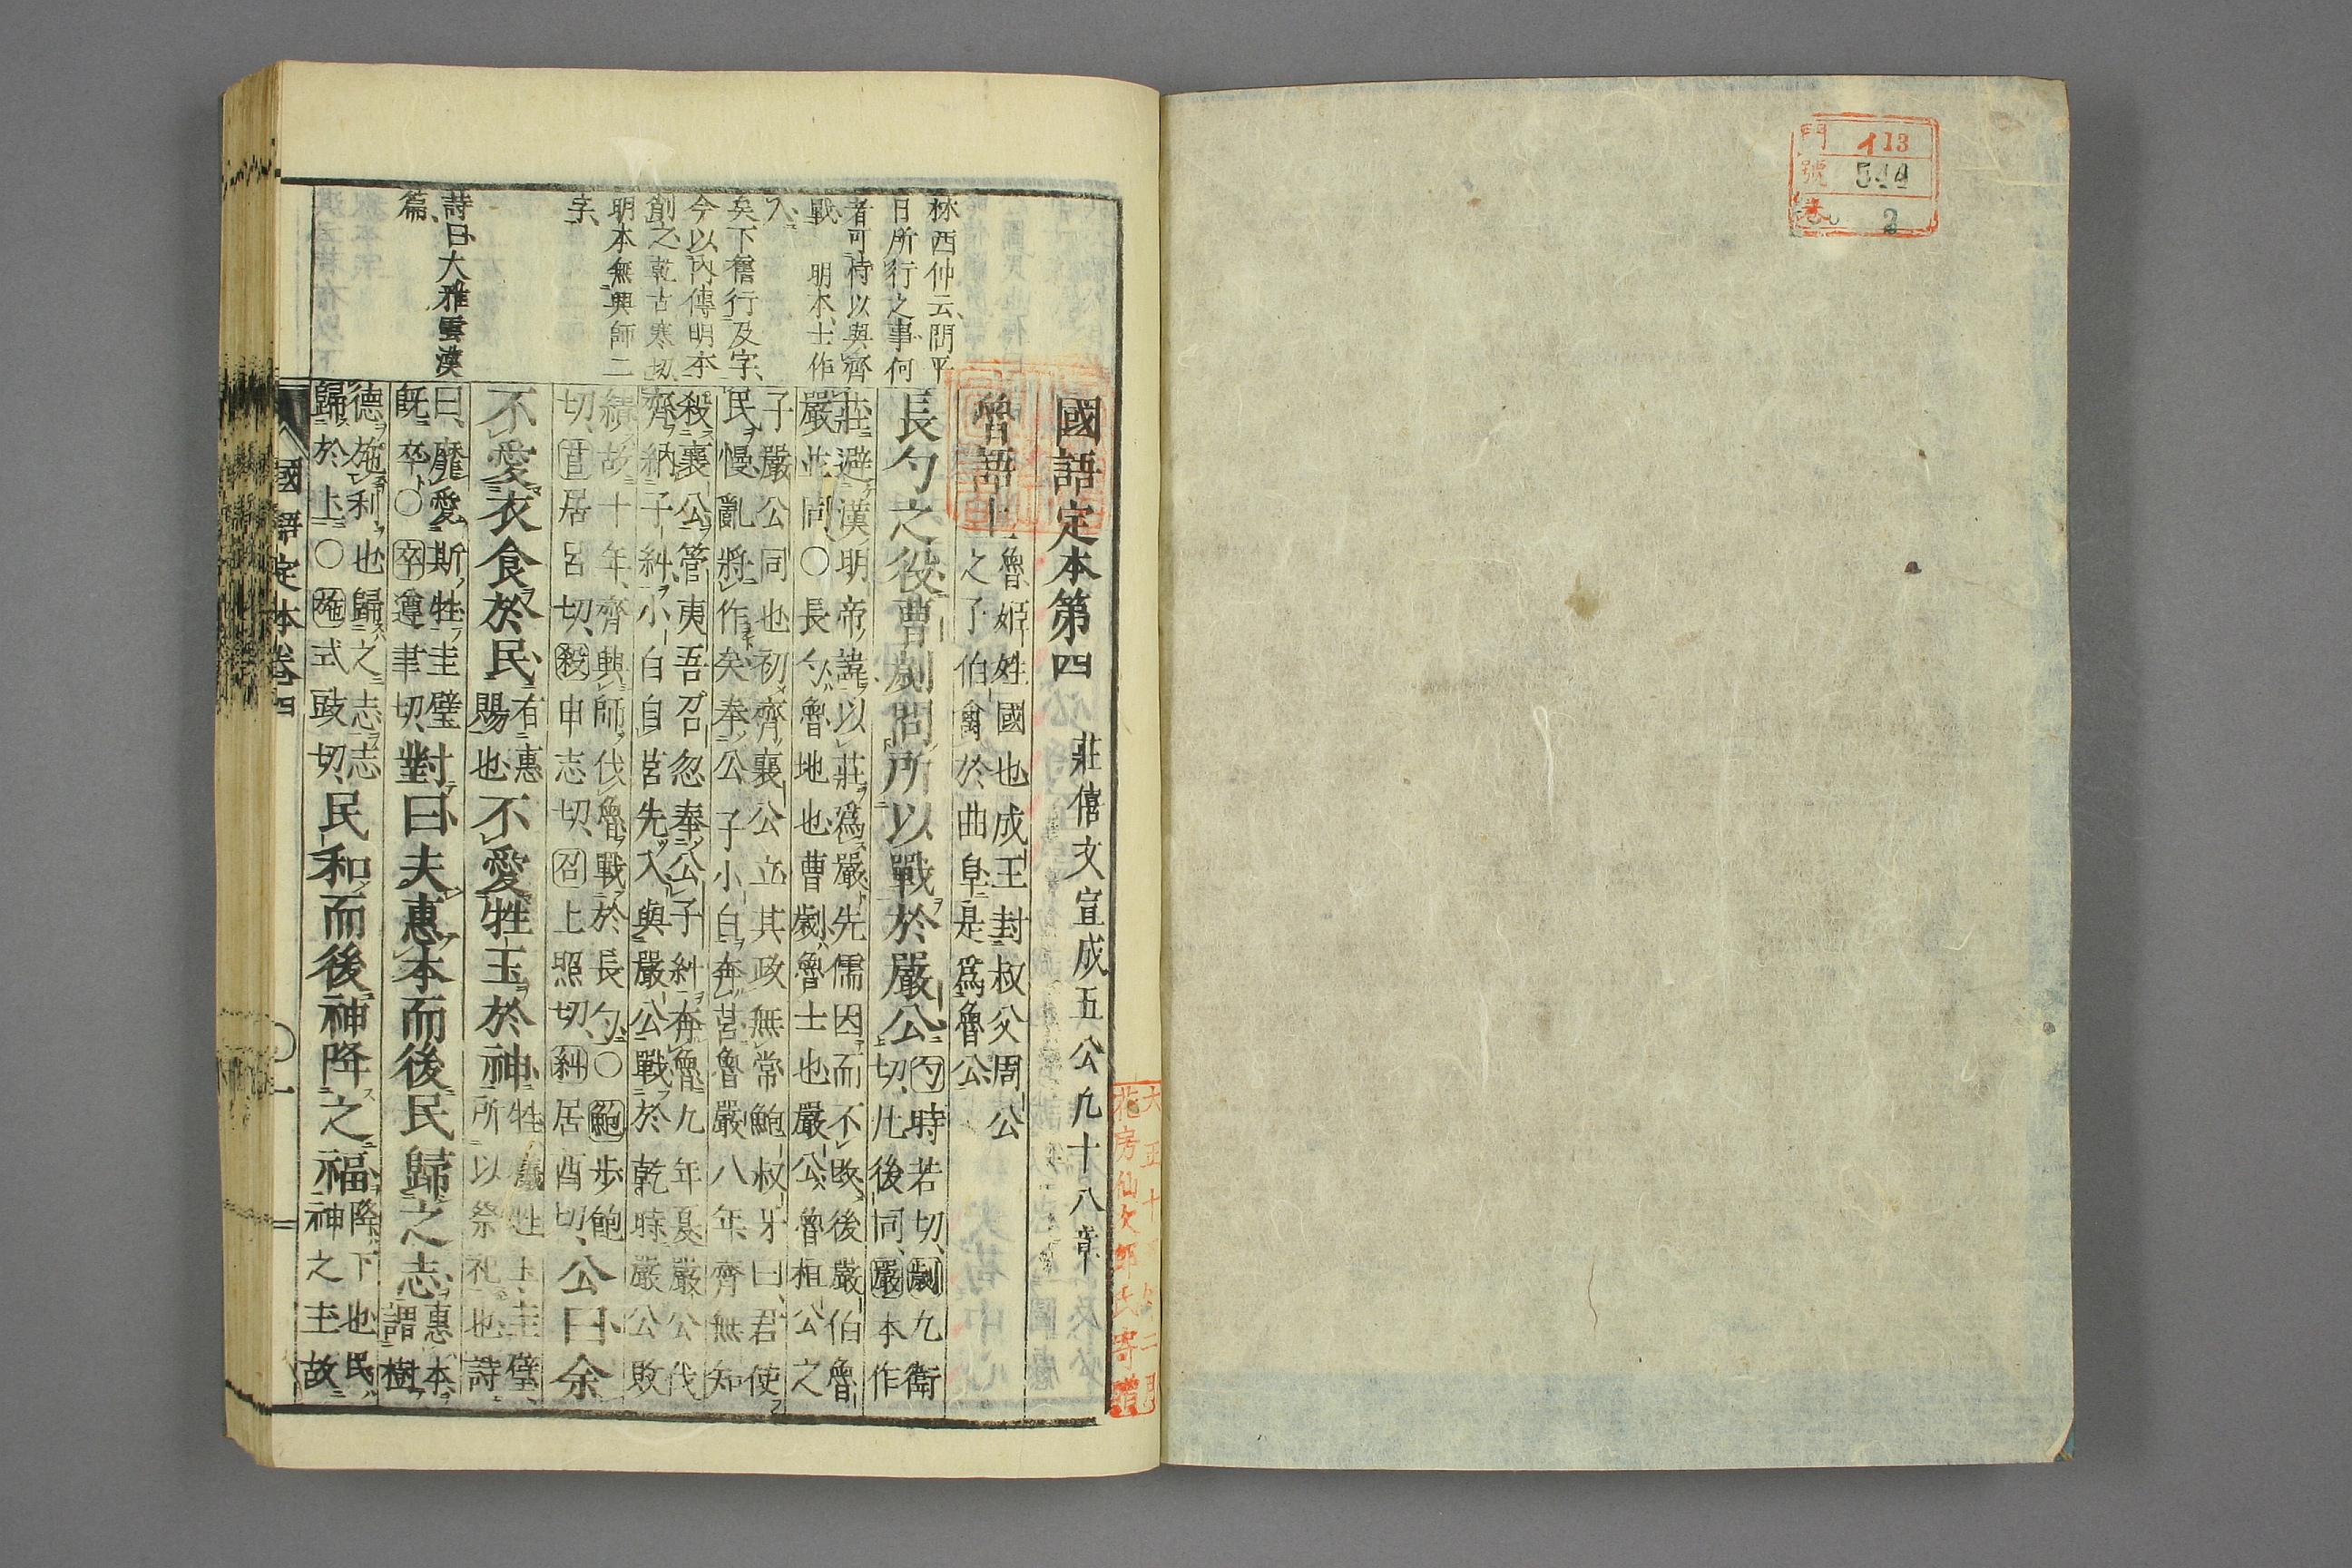 門 イ13
號 544
卷 2
國語定本第四 莊僖文宣成五公凡十八章
魯語上 魯姬姓國也成王封叔父周公
之子伯禽於曲阜是爲魯公
長勺之後曹劌問所以戰於嚴公 勺時若切劌九衛
切凡後同嚴本作
莊避漢明帝諱以莊爲嚴先儒因而不改後嚴伯魯
嚴並同○長勺魯地也曹劌魯士也嚴公魯桓公之
子嚴公同也初齊襄公立其政無常鮑叔牙曰君使
民慢亂將作矣奉公子小白奔莒魯嚴八年齊無知
殺襄公管夷吾召忽奉公子糾奔魯九年夏嚴公伐
齊納子糾小白自莒先入與嚴公戰於乾時嚴公敗
績故十年齊興師伐魯戰於長勺○鮑步飽
切莒居呂切殺申志切召上照切糾居酉切公曰余
不愛衣食於民 有惠
賜也 不愛牲玉於神 牲犧牲玉圭璧
所以祭祀也詩
曰靡愛斯牲圭璧
既卒○卒遵聿切 對曰夫惠本而後民歸之志 惠本
謂樹
德施利也歸之志志
歸於上○施式豉切 民和而後神降之福 降下也民
神之主故
林西仲云問平
日所行之事何
者可恃以與齊
戰 明本士作
入
矣下舊行及字
今以內傳明本
創之乾古寒切
明本無興師二
字
詩曰大雅雲漢
篇
國語定本卷四
一
花房仙次郎氏寄贈